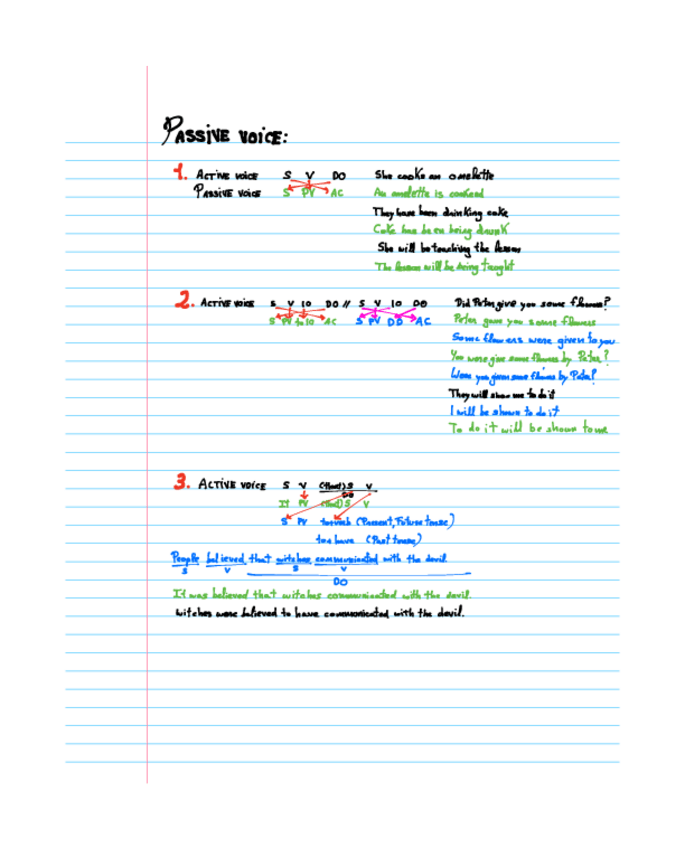 PASSIVE VOICE:
1. ACTIVE VOICE S V DO She cooks an omelette
PASSIVE VOICE S PV AC An omelette is cooked
They have been drinking coke
Coke has been being drunk
She will be teaching the lesson
The lesson will be being taught
2. ACTIVE VOICE S V IO DO // S V IO DO Did Peter give you some flowers?
S PV to IO AC S PV DO AC Peter gave you some flowers
Some flowers were given to you
You were give some flowers by Peter?
Were you given some flowers by Peter?
They will show me to do it
I will be shown to do it
To do it will be shown to me
3. ACTIVE VOICE S V (that) S V
DO
It PV (that) S V
S PV to (Present, Future tense)
to have (Past tense)
People believed that witches communicated with the devil
S V S V
DO
It was believed that witches communicated with the devil.
Witches were believed to have communicated with the devil.